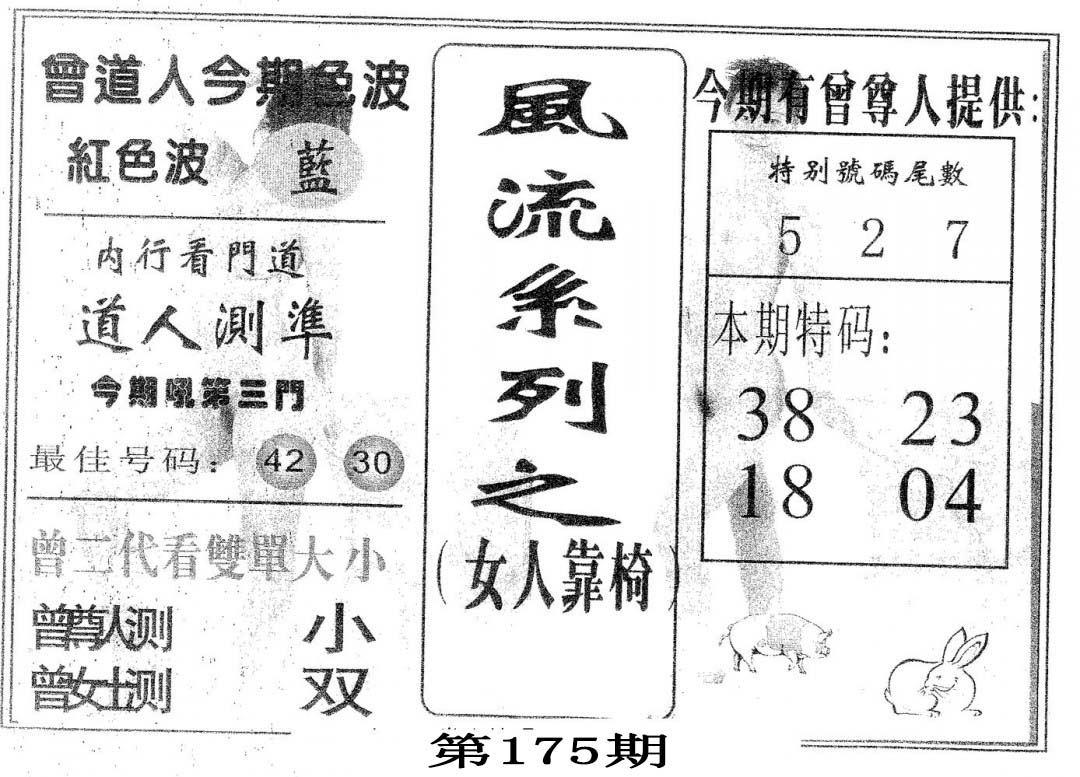 曾道人今期色波
紅色波 藍
内行看門道
道人測準
今期吼第三門
最佳号码: 42 30
曾二代看雙單大小
曾尊人测 小
曾女士测 双
風
流
系
列
之
(女人靠椅)
今期有曾尊人提供:
特别號碼尾數
5 2 7
本期特码:
38 23
18 04
第175期